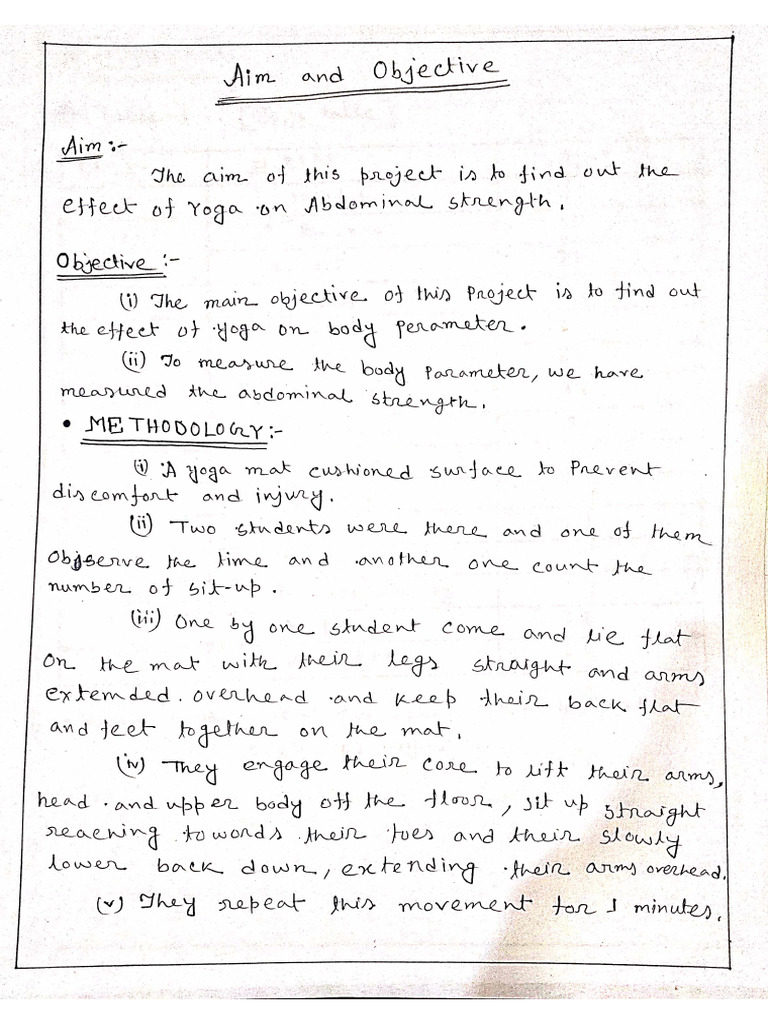 Aim and Objective
Aim :-
The aim of this project is to find out the
effect of Yoga on Abdominal strength.
Objective :-
(i) The main objective of this Project is to find out
the effect of yoga on body perameter.
(ii) To measure the body Parameter, we have
measured the abdominal strength.
• METHODOLOGY:-
(i) A yoga mat cushioned surface to Prevent
discomfort and injury.
(ii) Two students were there and one of them
Observe the time and another one count the
number of sit-up.
(iii) One by one student come and lie flat
On the mat with their legs straight and arms
extemded overhead and keep their back flat
and feet together on the mat.
(iv) They engage their core to lift their arms,
head and upper body off the floor, sit up straight
reaching towords their toes and their slowly
lower back down, extending their arms overhead.
(v) They repeat this movement for 1 minutes.